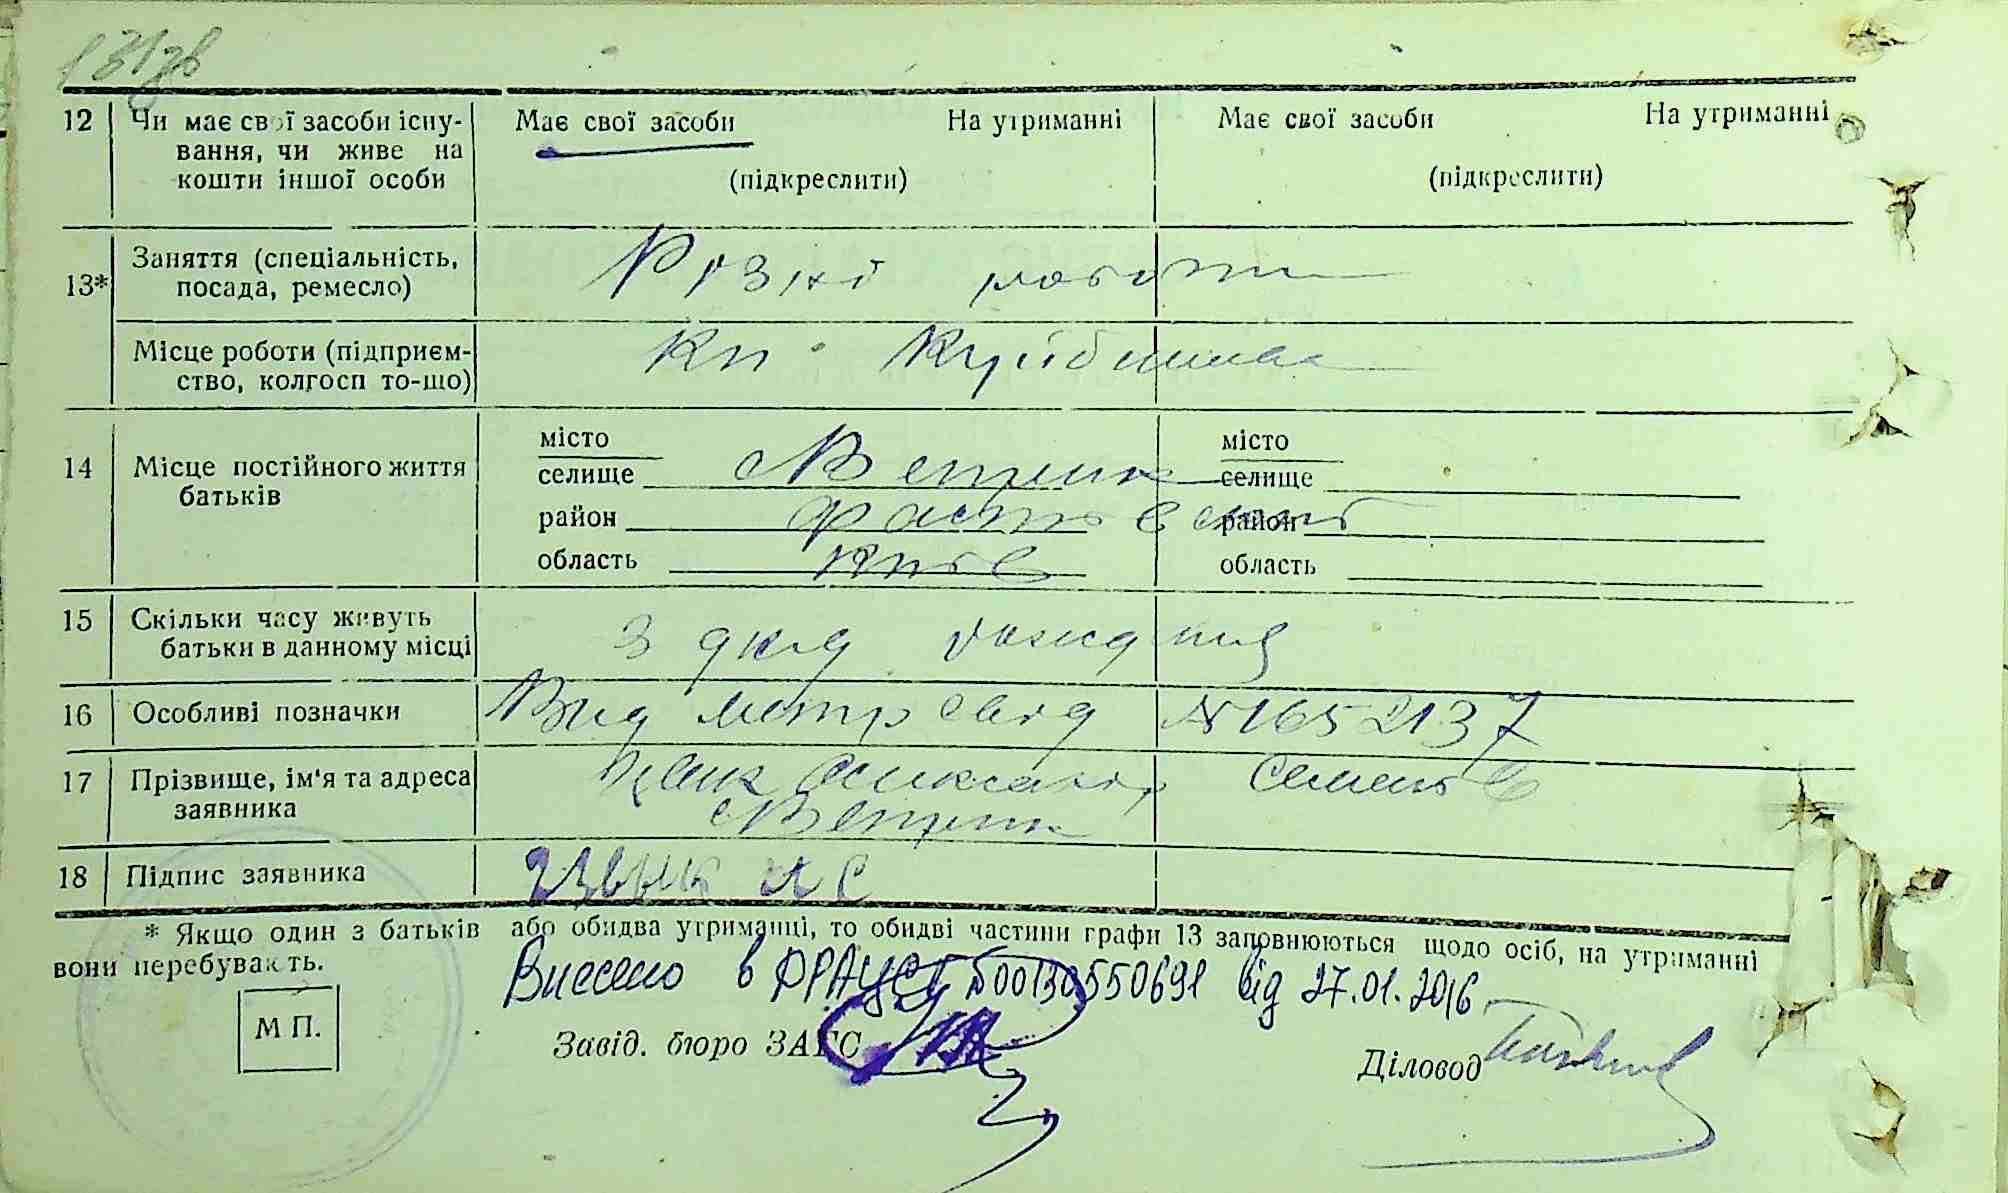 12 Чи має свої засоби існу- Має свої засоби На утриманні Має свої засоби На утриманні
вання, чи живе на
кошти іншої особи (підкреслити) (підкреслити)
13* Заняття (спеціальність, Різні роботи
посада, ремесло)
Місце роботи (підприєм- Кп Куйбишева
ство, колгосп то-що)
місто місто
14 Місце постійного життя селище с Веприк селище
батьків
район Фастівський район
область Київ область
15 Скільки часу живуть З дня рождения
батьки в данному місці
16 Особливі позначки Вид метр свід № 1652137
17 Прізвище, ім'я та адреса Цвик Олександр Семенов
заявника с Веприк
18 Підпис заявника Цвык А С
* Якщо один з батьків або обидва утриманці, то обидві частини графи 13 заповнюються щодо осіб, на утриманні
вони перебувають.
Внесено в ДРАЦСГ №00130550691 від 27.01.2016
М П. Завід. бюро ЗАГС Діловод